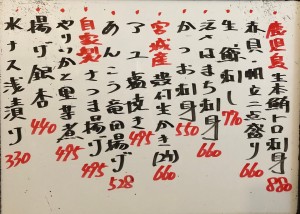 鹿児島 生本鮪トロ刺身 880
赤貝・帆立二点盛り
生鯨刺し 770
天然はまち刺身 660
かつお刺身 550
宮城産 殻付生かき(2ケ) 660
アユ塩焼き 495
あんこう竜田揚げ 528
自家製 さつま揚げ 495
やりいかと里芋煮 495
揚げ銀杏 440
水ナス浅漬り 330